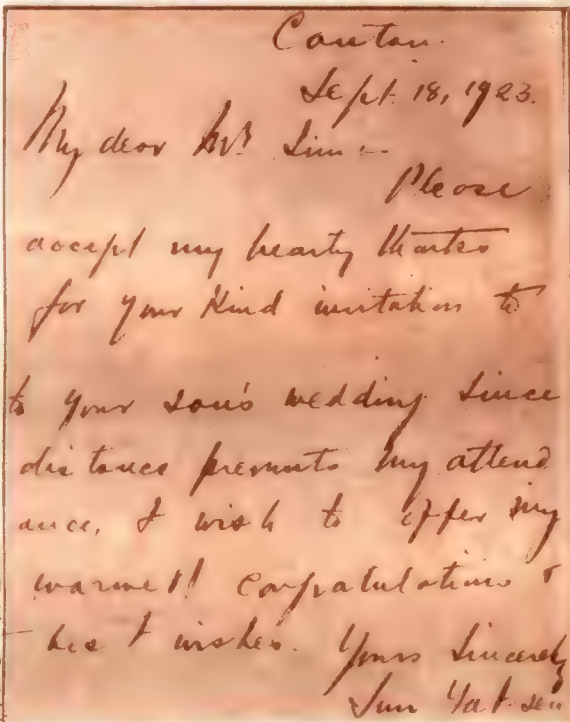 Canton.
Sept. 18, 1923.
My dear Mr.
Please
accept my hearty thanks
for your kind invitation to
to your son's wedding. Since
distance prevents my attend
ance, I wish to offer my
warmest congratulations &
best wishes. Yours Sincerely
Sun Yat-sen